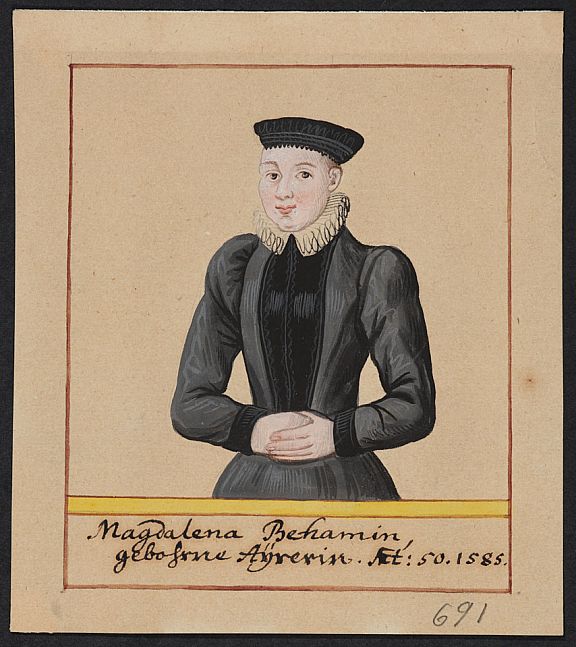 Magdalena Behamin,
gebohrne Aÿrerin. Æt: 50. 1585.
691